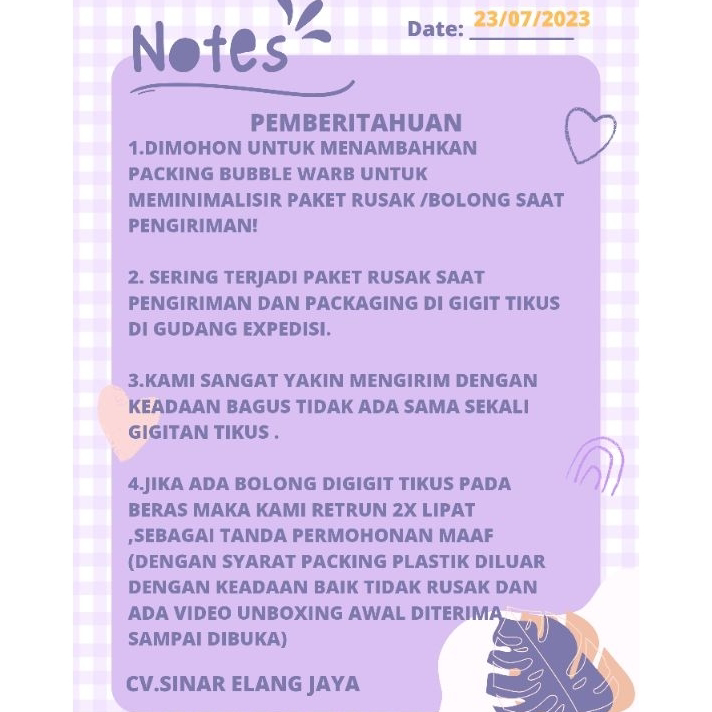 Notes
Date: 23/07/2023
PEMBERITAHUAN
1.DIMOHON UNTUK MENAMBAHKAN
PACKING BUBBLE WARB UNTUK
MEMINIMALISIR PAKET RUSAK /BOLONG SAAT
PENGIRIMAN!
2. SERING TERJADI PAKET RUSAK SAAT
PENGIRIMAN DAN PACKAGING DI GIGIT TIKUS
DI GUDANG EXPEDISI.
3.KAMI SANGAT YAKIN MENGIRIM DENGAN
KEADAAN BAGUS TIDAK ADA SAMA SEKALI
GIGITAN TIKUS .
4.JIKA ADA BOLONG DIGIGIT TIKUS PADA
BERAS MAKA KAMI RETRUN 2X LIPAT
,SEBAGAI TANDA PERMOHONAN MAAF
(DENGAN SYARAT PACKING PLASTIK DILUAR
DENGAN KEADAAN BAIK TIDAK RUSAK DAN
ADA VIDEO UNBOXING AWAL DITERIMA
SAMPAI DIBUKA)
CV.SINAR ELANG JAYA